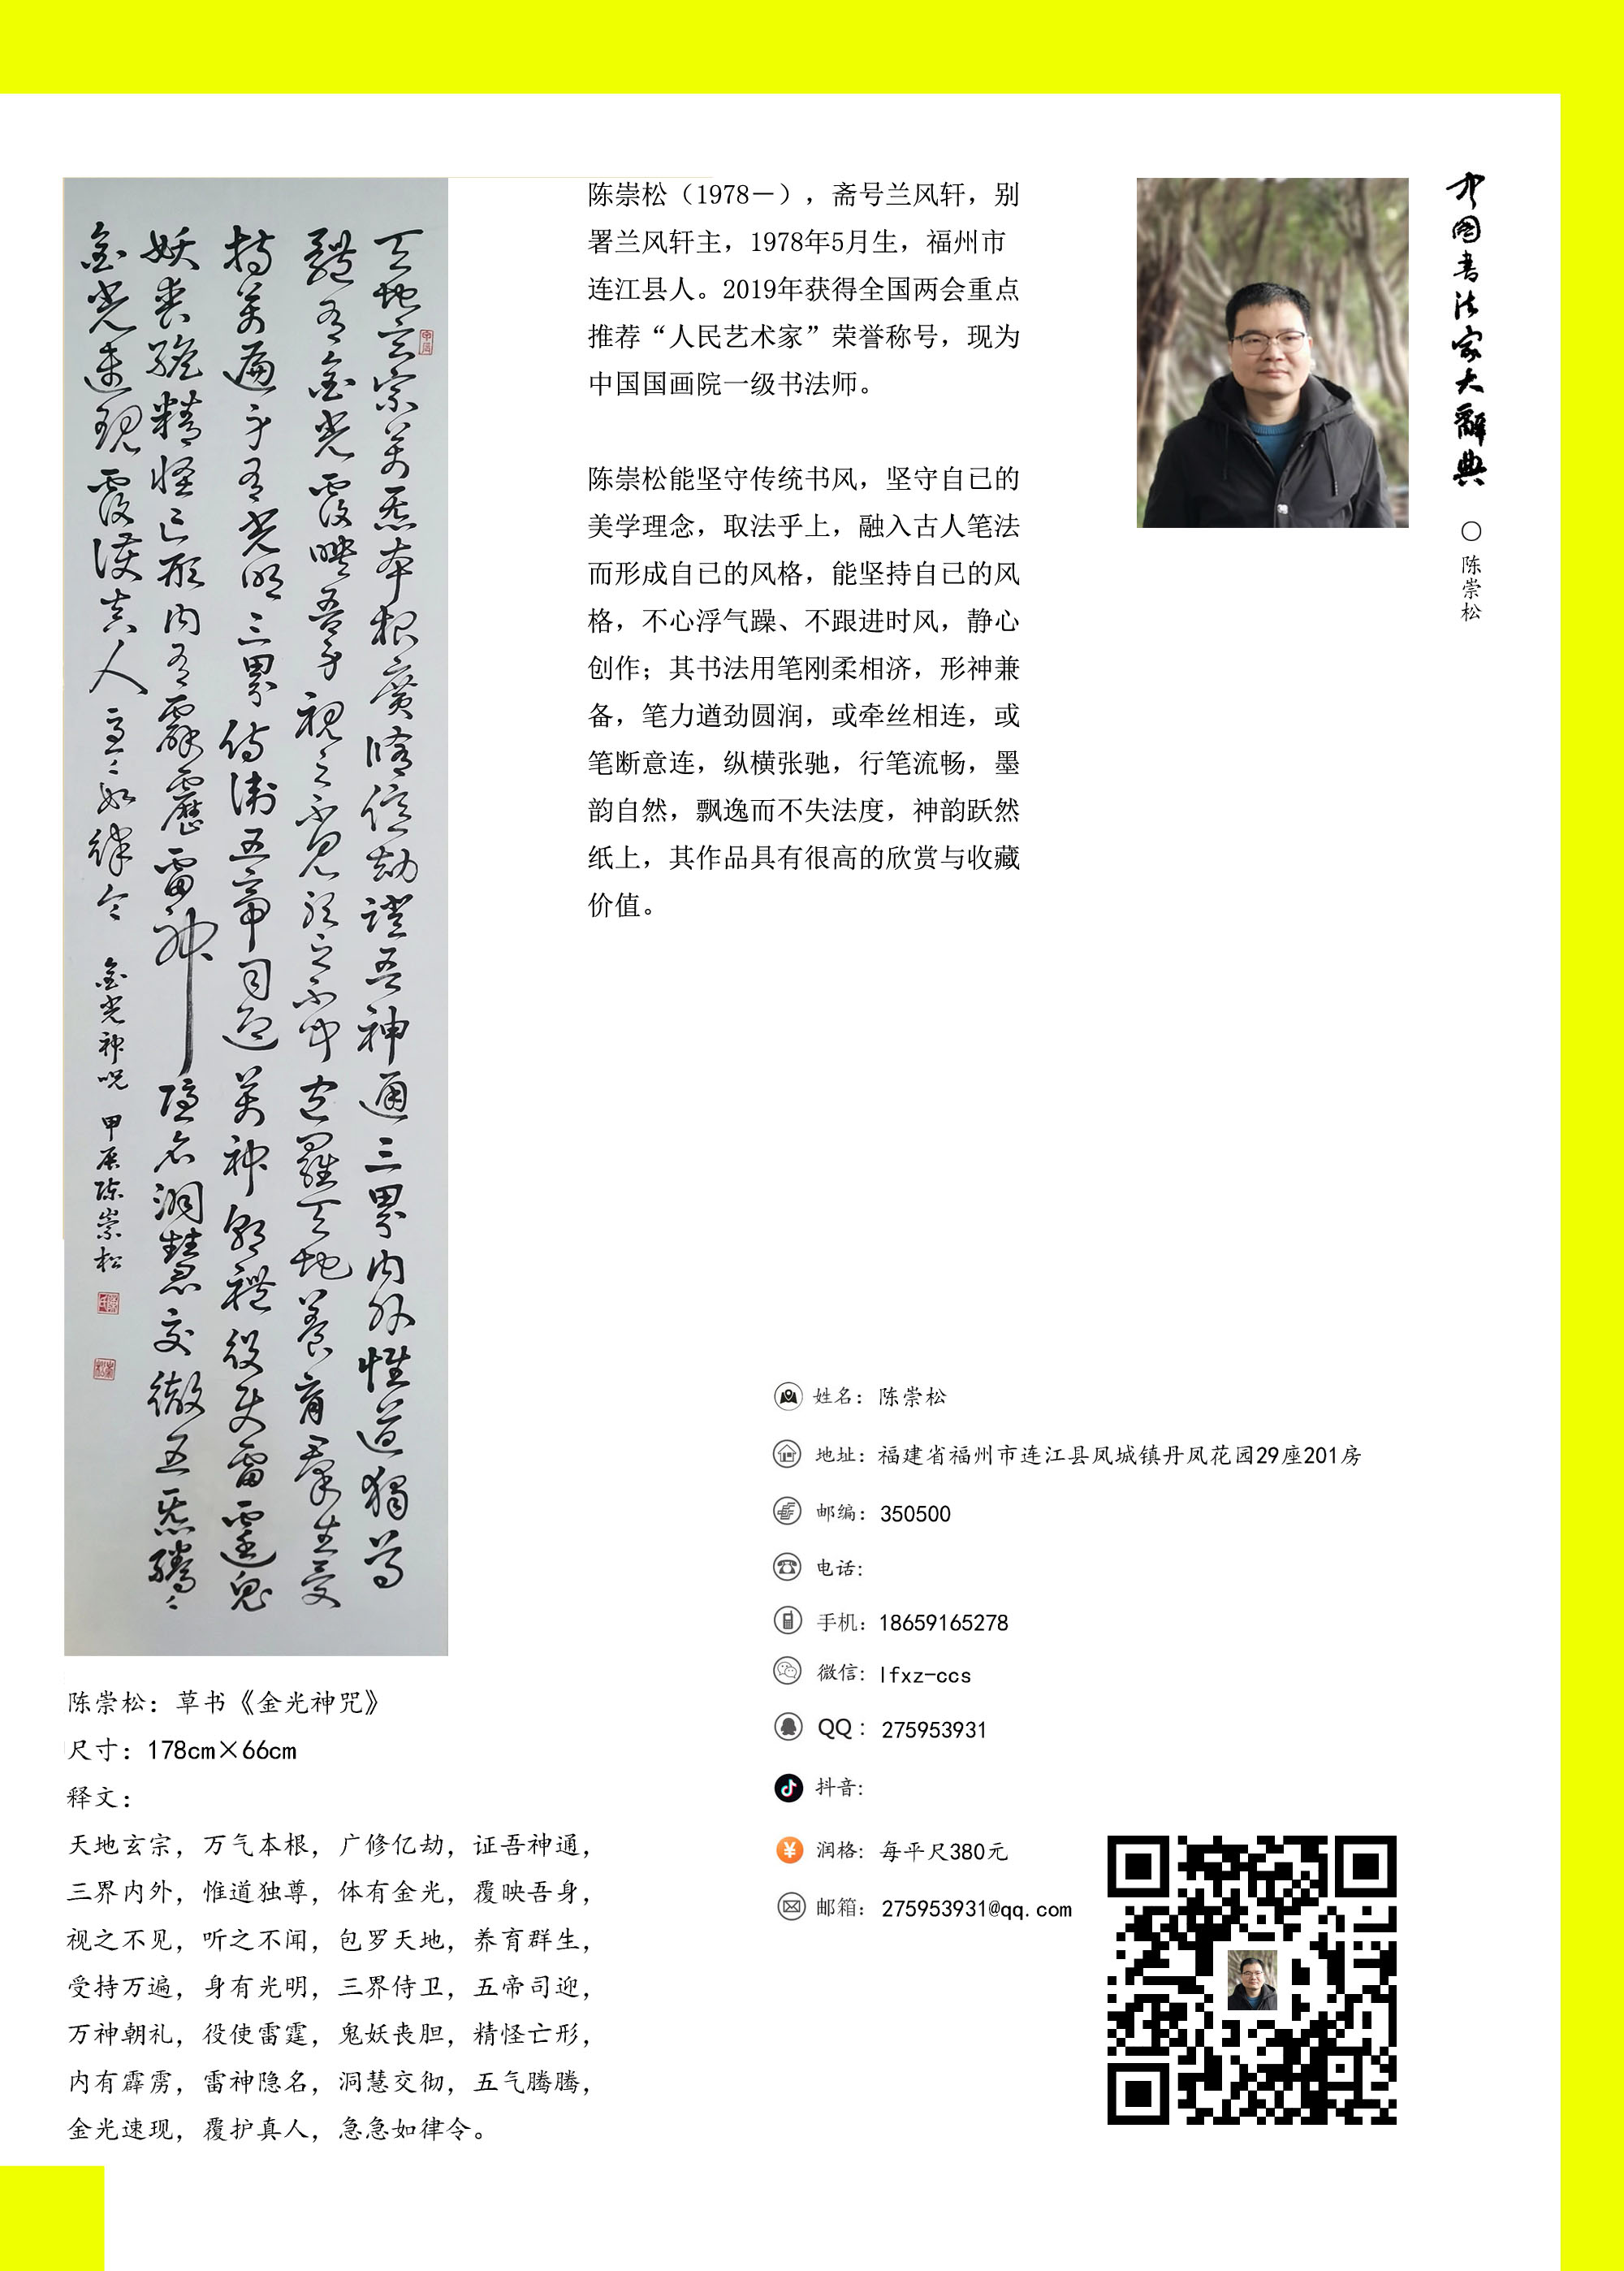 中国书法家大辞典
○ 陈崇松
陈崇松（1978－），斋号兰风轩，别
署兰风轩主，1978年5月生，福州市
连江县人。2019年获得全国两会重点
推荐“人民艺术家”荣誉称号，现为
中国国画院一级书法师。
陈崇松能坚守传统书风，坚守自己的
美学理念，取法乎上，融入古人笔法
而形成自己的风格，能坚持自己的风
格，不心浮气躁、不跟进时风，静心
创作；其书法用笔刚柔相济，形神兼
备，笔力遒劲圆润，或牵丝相连，或
笔断意连，纵横张驰，行笔流畅，墨
韵自然，飘逸而不失法度，神韵跃然
纸上，其作品具有很高的欣赏与收藏
价值。
天地玄宗万炁本根广修亿劫證吾神通三界内外惟道獨尊
體有金光覆映吾身視之不见听之不闻包羅天地養育群生受
持萬遍身有光明三界侍衛五帝司迎萬神朝禮役使雷霆鬼
妖丧膽精怪亡形内有霹靂雷神隐名洞慧交徹五炁騰〻
金光速現覆護真人急〻如律令 金光神咒 甲辰陈崇松
陈崇松：草书《金光神咒》
尺寸：178cm×66cm
释文：
天地玄宗，万气本根，广修亿劫，证吾神通，
三界内外，惟道独尊，体有金光，覆映吾身，
视之不见，听之不闻，包罗天地，养育群生，
受持万遍，身有光明，三界侍卫，五帝司迎，
万神朝礼，役使雷霆，鬼妖丧胆，精怪亡形，
内有霹雳，雷神隐名，洞慧交彻，五气腾腾，
金光速现，覆护真人，急急如律令。
姓名：陈崇松
地址：福建省福州市连江县凤城镇丹凤花园29座201房
邮编：350500
电话：
手机：18659165278
微信：lfxz-ccs
QQ：275953931
抖音：
润格：每平尺380元
邮箱：275953931@qq.com